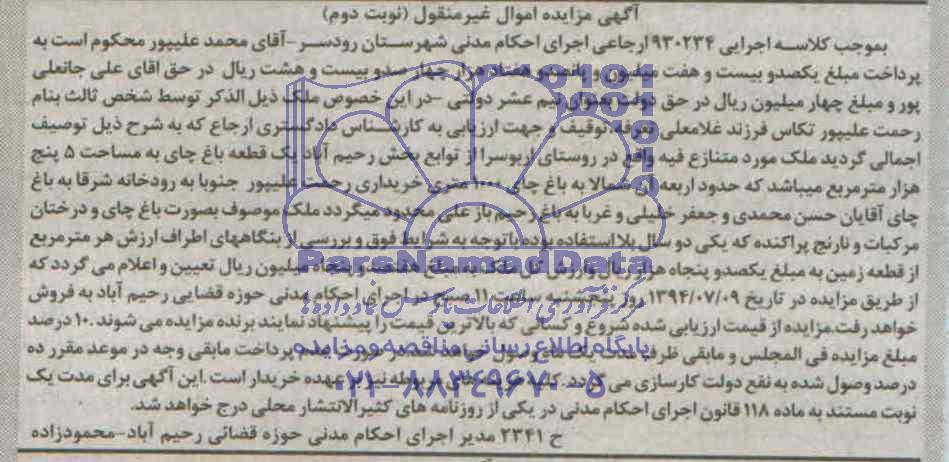 آگهی مزایده اموال غیرمنقول (نوبت دوم)
بموجب کلاسه اجرایی ۹۳۰۲۳۴ ارجاعی اجرای احکام مدنی شهرستان رودسر-آقای محمد علیپور محکوم است به
پرداخت مبلغ یکصدو بیست و هفت میلیون و پانصدو هفتاد هزار چهار صدو بیست و هشت ریال در حق اقای علی جانعلی
پور و مبلغ چهار میلیون ریال در حق دولت بعنوان نیم عشر دولتی -در این خصوص ملک ذیل الذکر توسط شخص ثالث بنام
رحمت علیپور تکاس فرزند غلامعلی تعرفه، توقیف و جهت ارزیابی به کارشناس دادگستری ارجاع که به شرح ذیل توصیف
اجمالی گردید ملک مورد متنازع فیه واقع در روستای اربوسرا از توابع بخش رحیم آباد یک قطعه باغ چای به مساحت ۵ پنج
هزار مترمربع میباشد که حدود اربعه آن شمالا به باغ چای ۱۰۰۰ متری خریداری رحمت علیپور جنوبا به رودخانه شرقا به باغ
چای آقایان حسن محمدی و جعفر خلیلی و غربا به باغ رحیم باز علی محدود میگردد ملک موصوف بصورت باغ چای و درختان
مرکبات و نارنج پراکنده که یکی دو سال بلااستفاده بوده باتوجه به شرایط فوق و بررسی از بنگاههای اطراف ارزش هر مترمربع
از قطعه زمین به مبلغ یکصدو پنجاه هزار ریال وارزش کل ملک به مبلغ هفتصدو پنجاه میلیون ریال تعیین و اعلام می گردد که
از طریق مزایده در تاریخ ۱۳۹۴/۰۷/۰۹ روز پنج شنبه ساعت ۱۱ صبح در اجرای احکام مدنی حوزه قضایی رحیم آباد به فروش
خواهد رفت.مزایده از قیمت ارزیابی شده شروع و کسانی که بالاترین قیمت را پیشنهاد نمایند برنده مزایده می شوند .۱۰ درصد
مبلغ مزایده فی المجلس و مابقی ظرف مدت یک ماه وصول خواهد شد در صورت عدم پرداخت مابقی وجه در موعد مقرر ده
درصد وصول شده به نفع دولت کارسازی می گردد. کلیه هزینه های مربوطه نیز بر عهده خریدار است .این آگهی برای مدت یک
نوبت مستند به ماده ۱۱۸ قانون اجرای احکام مدنی در یکی از روزنامه های کثیرالانتشار محلی درج خواهد شد.
ح ۲۳۴۱ مدیر اجرای احکام مدنی حوزه قضائی رحیم آباد-محمودزاده
ParsNamadData
مرکز فرآوری اطلاعات پارس نماد داده ها
پایگاه اطلاع رسانی مناقصه و مزایده
۰۲۱-۸۸۳۴۹۶۷۰-۵